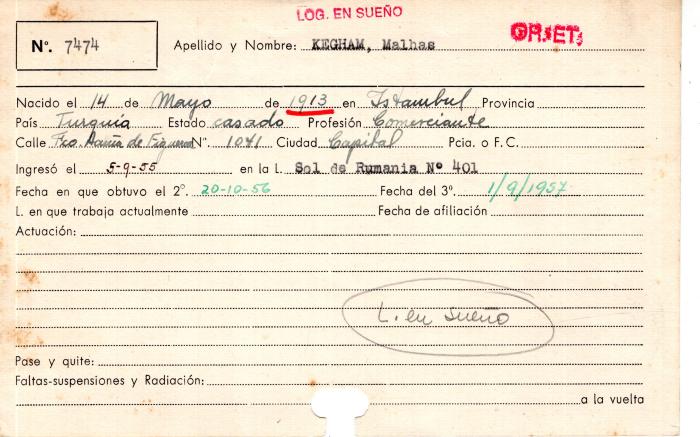 LOG. EN SUEÑO
Nº. 7474 Apellido y Nombre: KEGHAM, Malhas
Nacido el 14 de Mayo de 1913 en Istambul Provincia
País Turquia Estado casado Profesión Comerciante
Calle Fco. Acuña de Figueroa Nº. 1041 Ciudad Capital Pcia. o F.C.
Ingresó el 5-9-55 en la L. Sol de Rumania Nº 401
Fecha en que obtuvo el 2º. 20-10-56 Fecha del 3º. 1/9/1957
L. en que trabaja actualmente Fecha de afiliación
Actuación:
L. en sueño
Pase y quite:
Faltas-suspensiones y Radiación:
a la vuelta